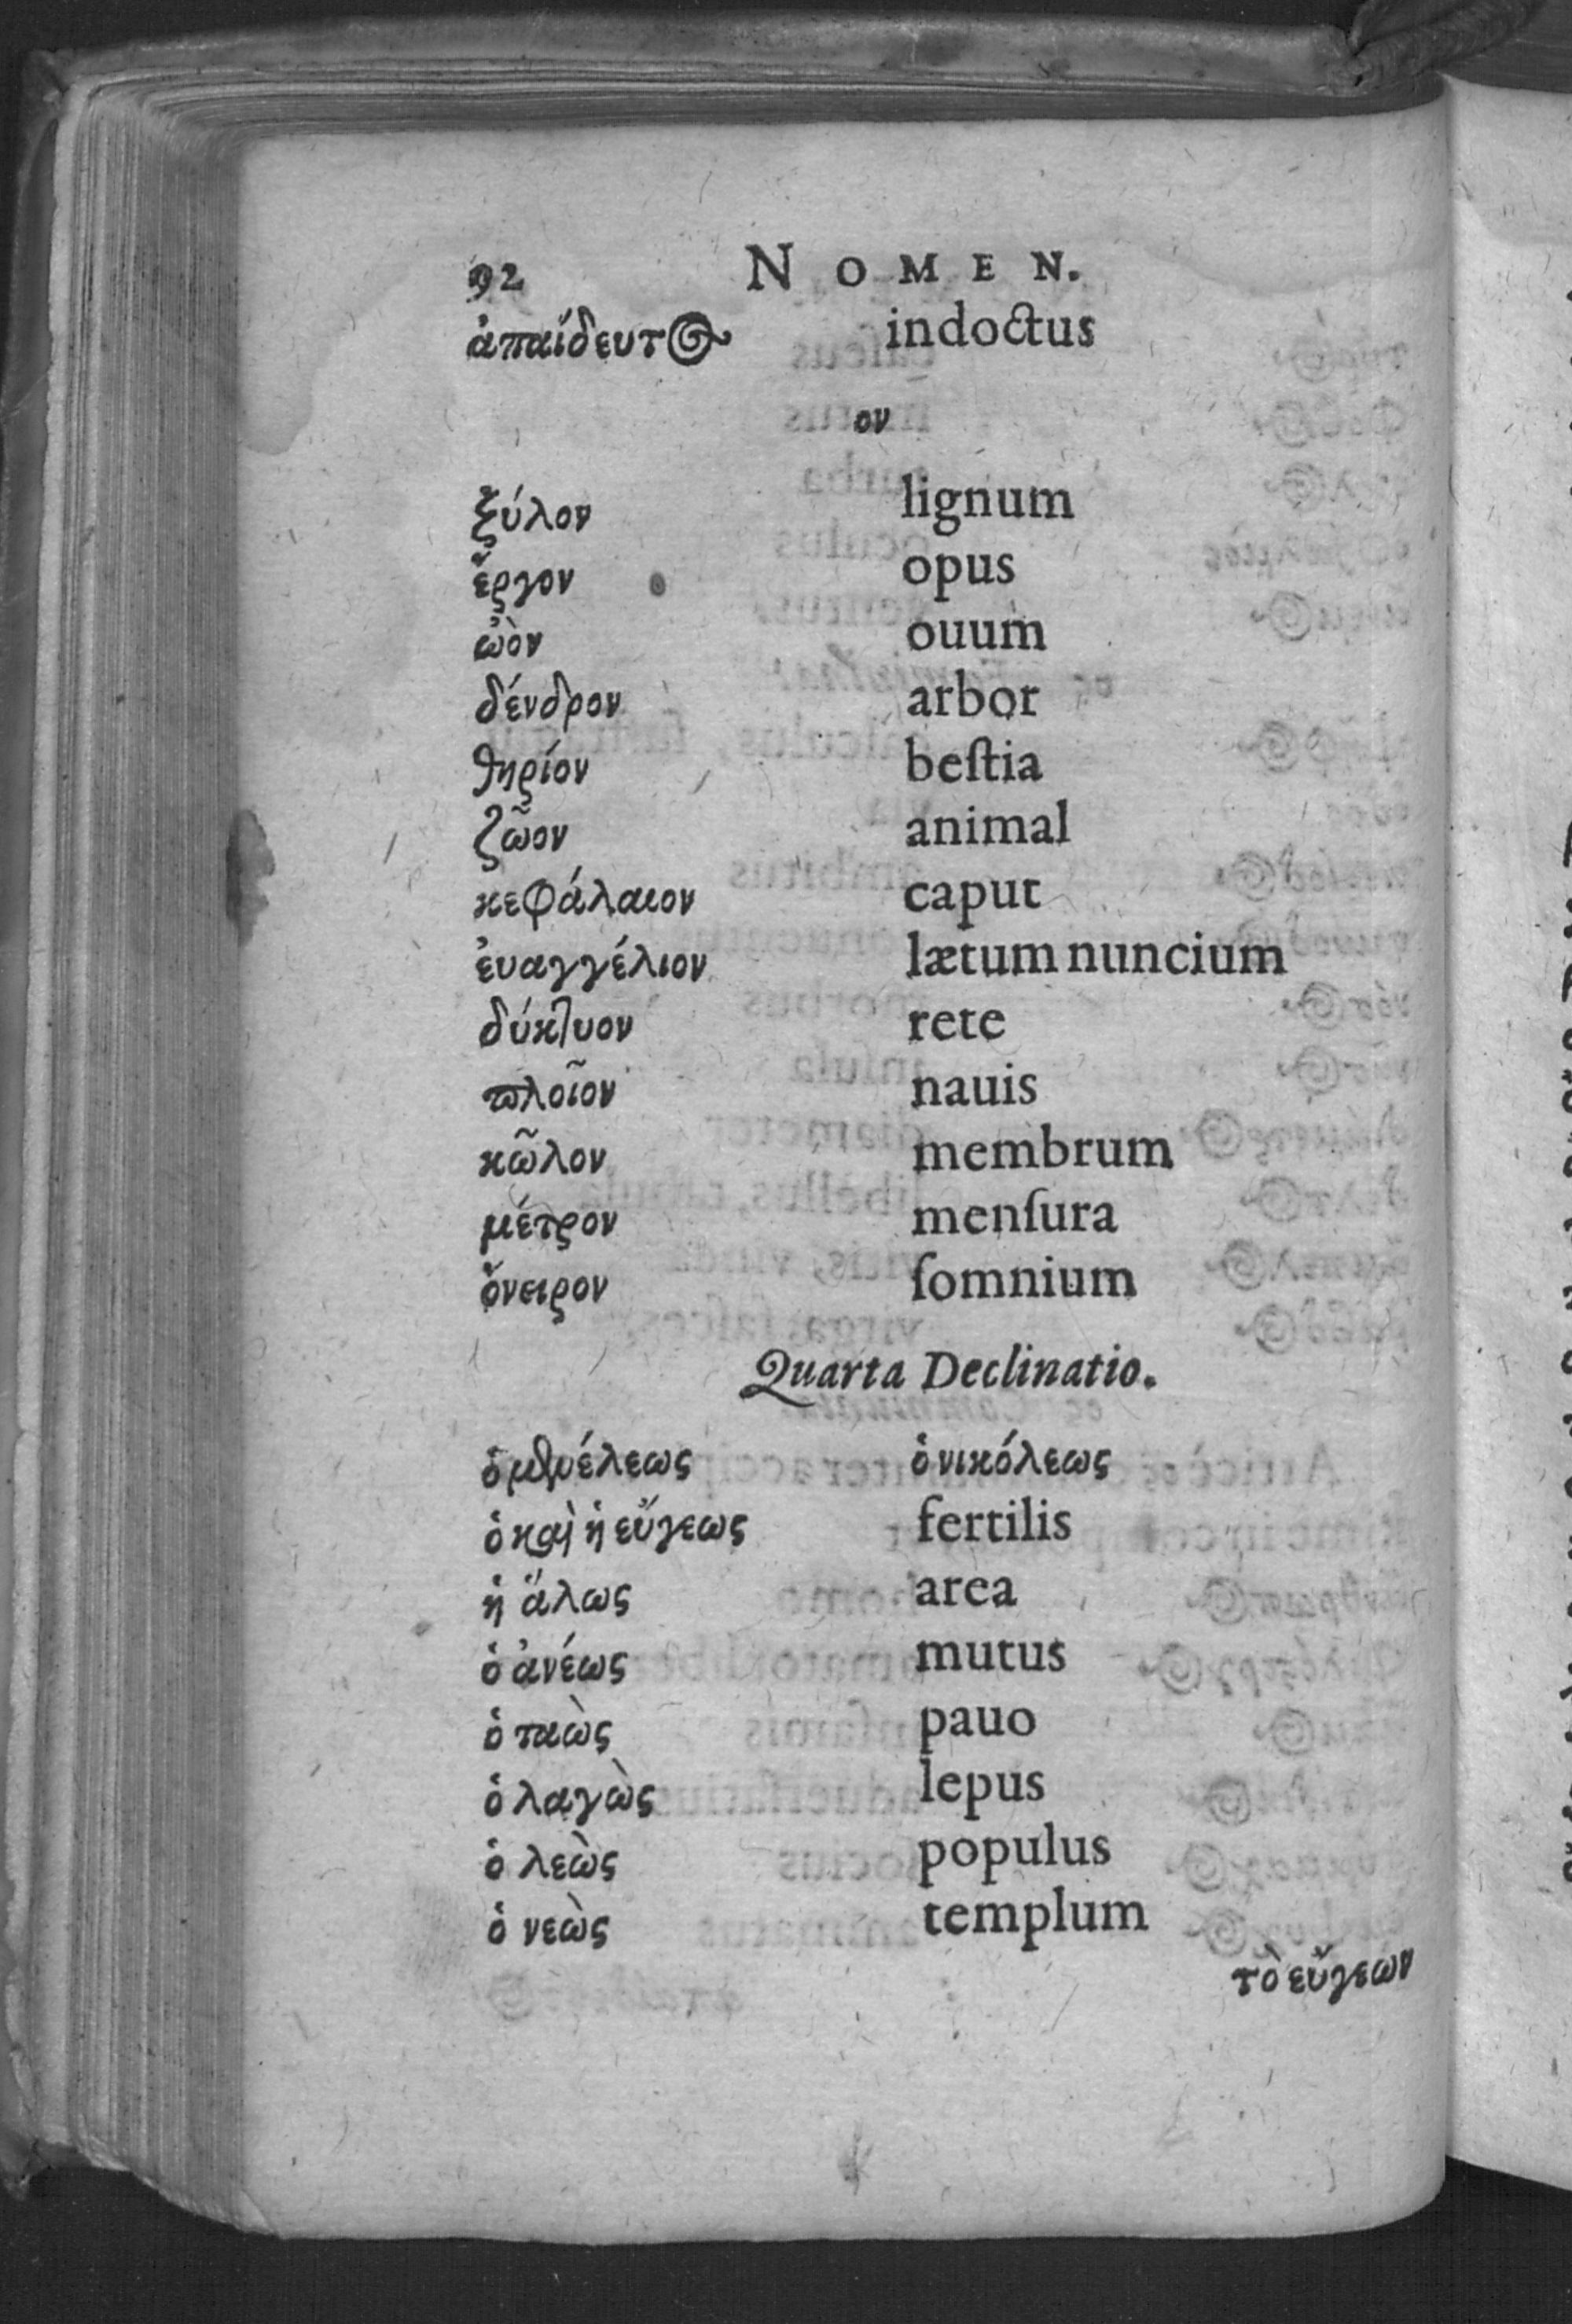 92 NOMEN.
ἀπαίδευτος indoctus
ον
ξύλον lignum
ἔργον opus
ὠὸν ouum
δένδρον arbor
θηρίον beſtia
ζῶον animal
κεφάλαιον caput
ἐυαγγέλιον lætum nuncium
δύκτυον rete
πλοῖον nauis
κῶλον membrum
μέτρον menſura
ὄνειρον ſomnium
Quarta Declinatio.
ὁ μενέλεως ὁ νικόλεως
ὁ καὶ ἡ εὔγεως fertilis
ἡ ἅλως area
ὁ ἀνέως mutus
ὁ ταὼς pauo
ὁ λαγὼς lepus
ὁ λεὼς populus
ὁ νεὼς templum
τὸ εὔγεων